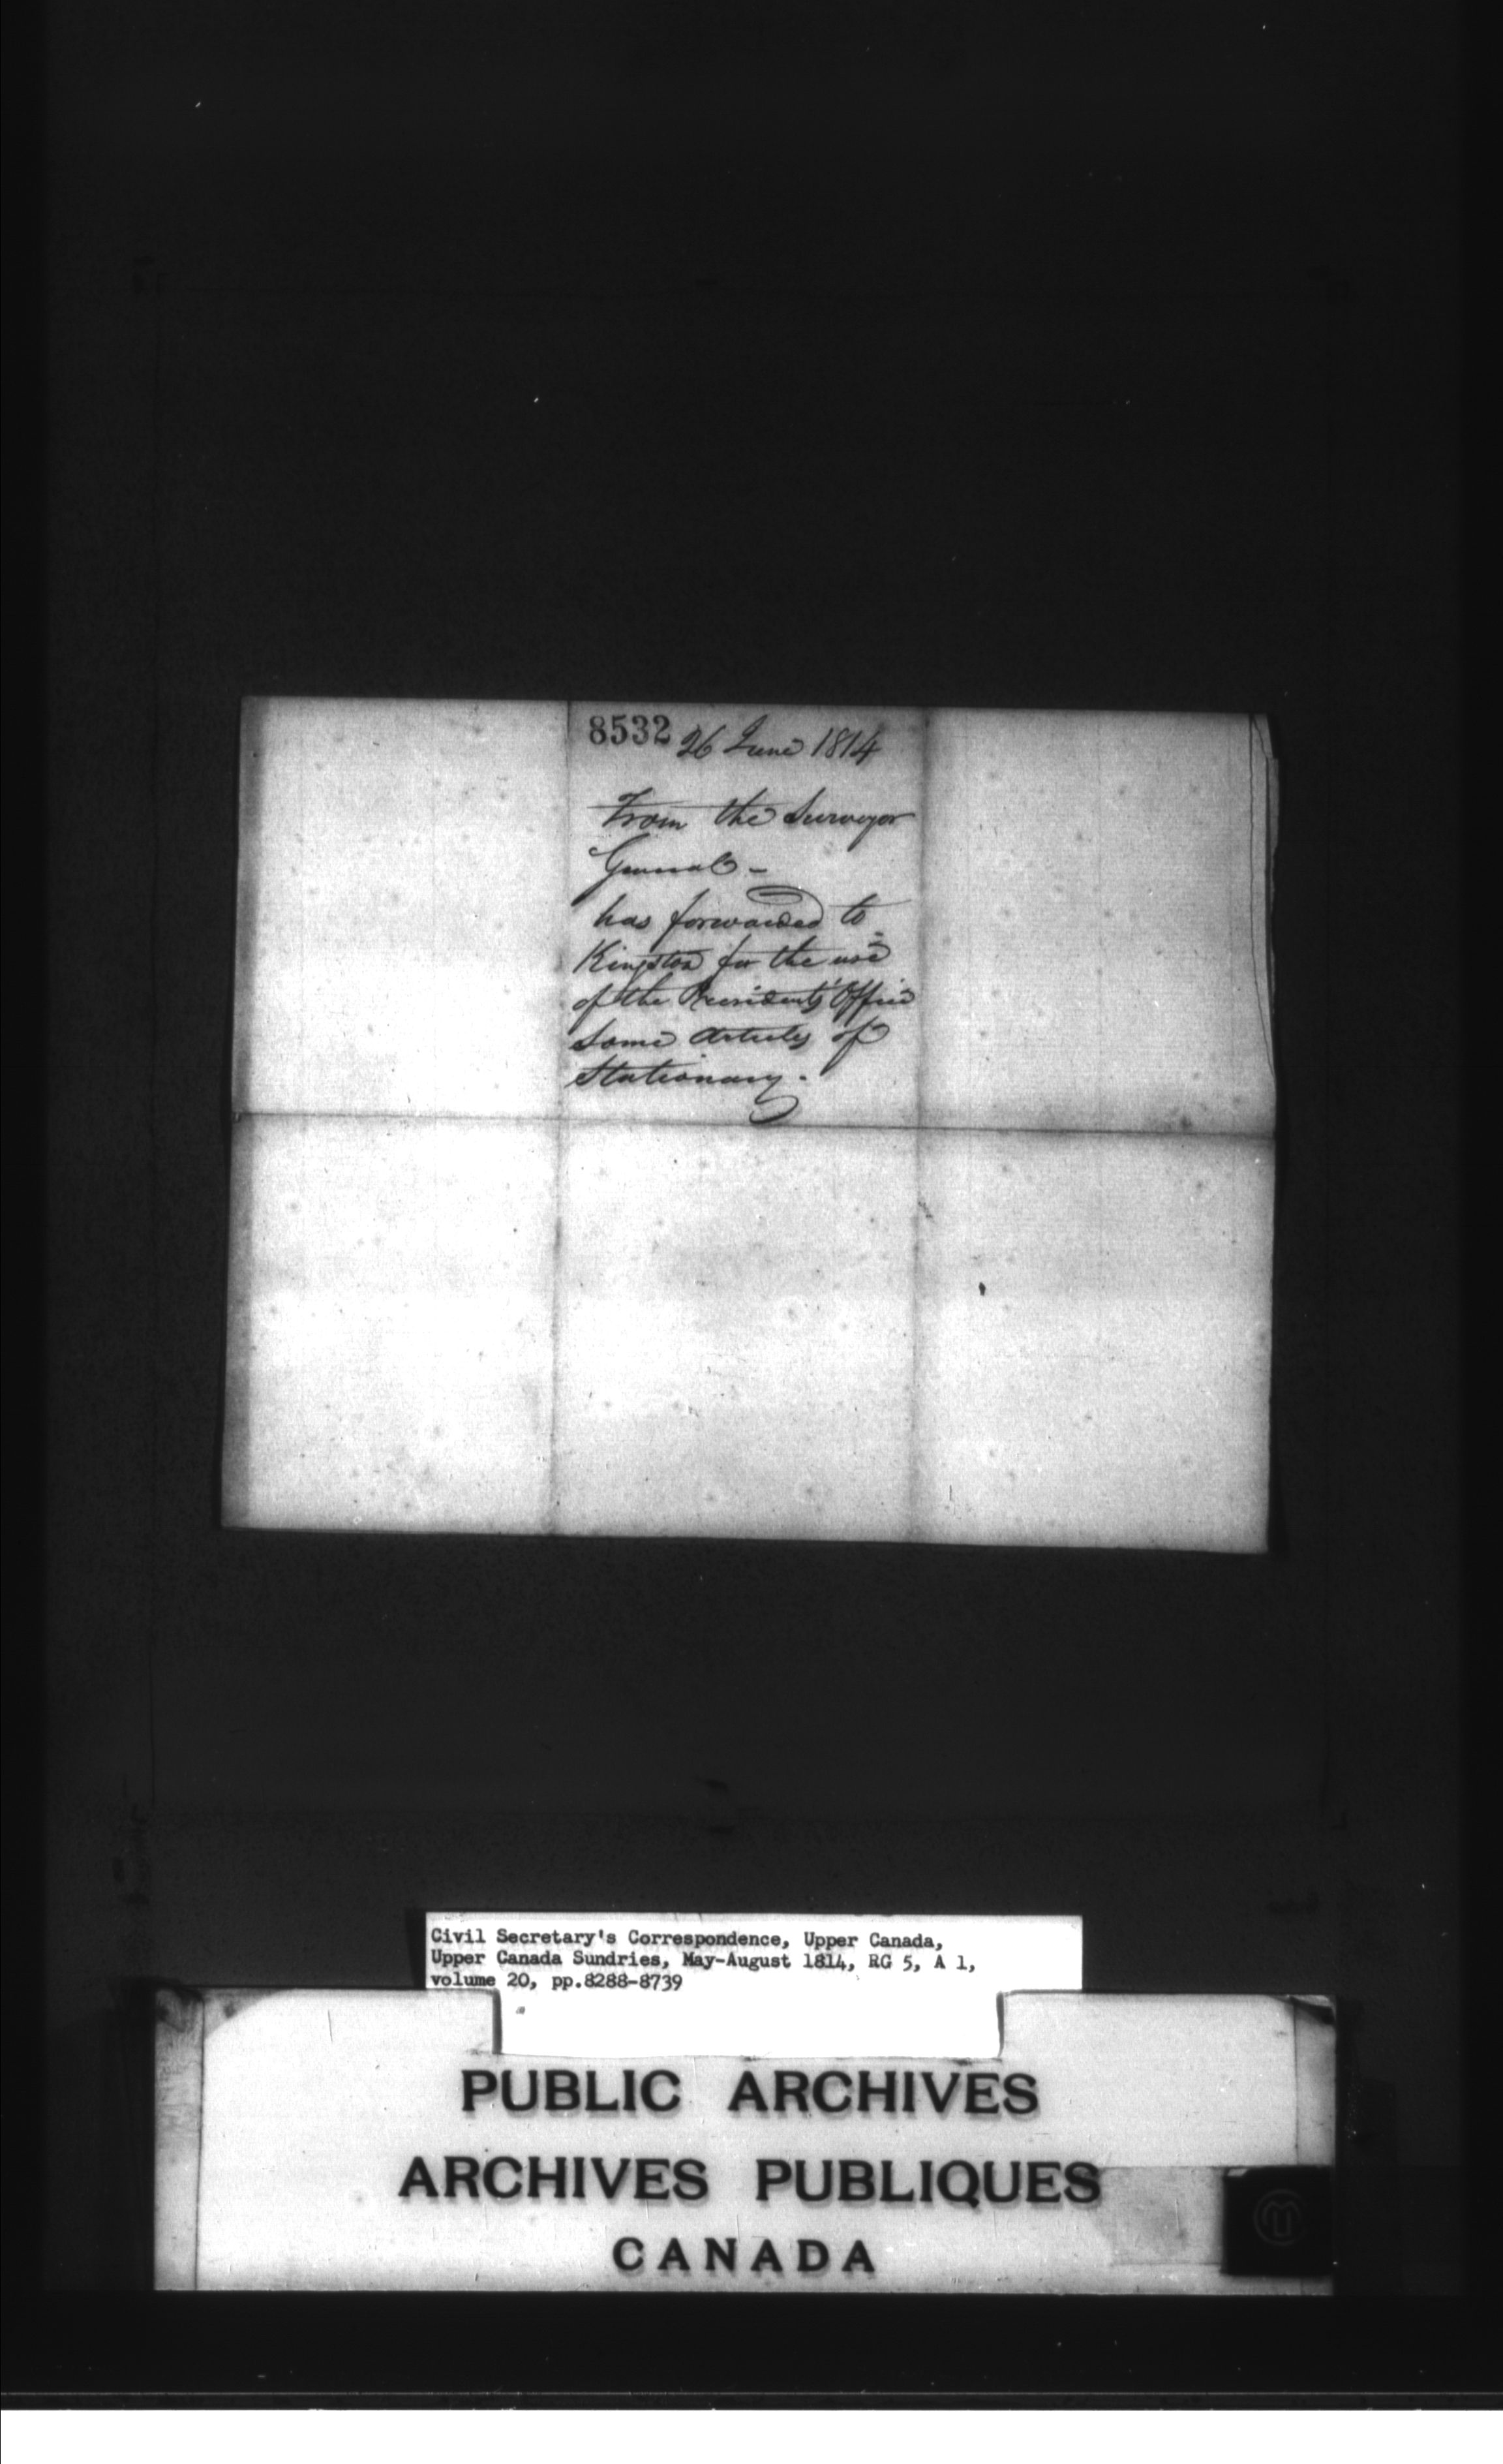 8532 26 June 1814
From the Surveyor
General -
has forwarded to
Kingston for the use
of the Presidents' Office
some Articles of
Stationary.
Civil Secretary's Correspondence, Upper Canada,
Upper Canada Sundries, May-August 1814, RG 5, A 1,
volume 20, pp.8288-8739
PUBLIC ARCHIVES
ARCHIVES PUBLIQUES
CANADA